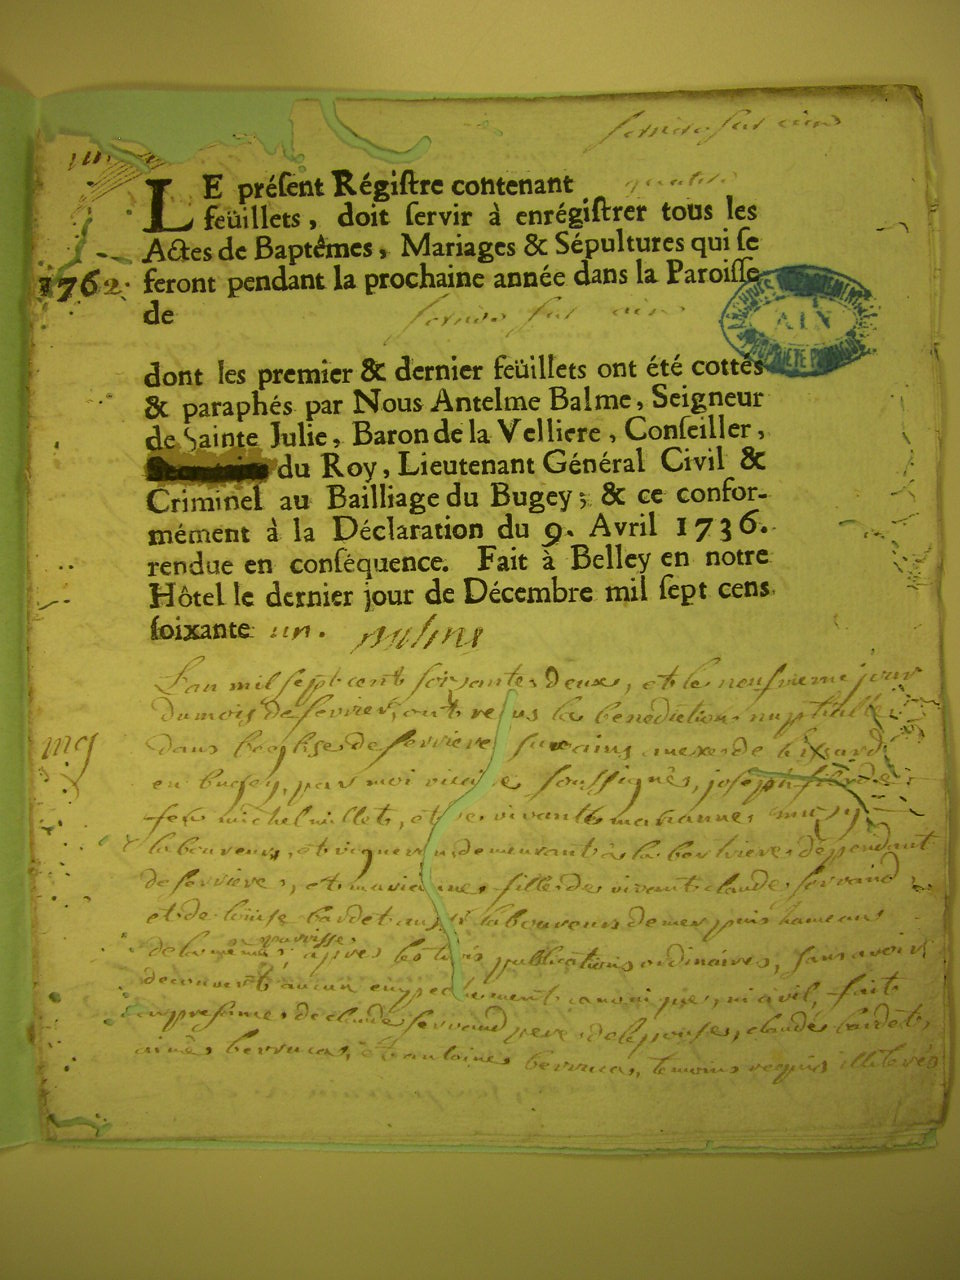 LE préſent Régiſtre contenant quatre
feüillets, doit ſervir à enrégiſtrer tous les
Actes de Baptêmes, Mariages & Sépultures qui ſe
1762. feront pendant la prochaine année dans la Paroiſſe
de
ARCHIVES DÉPARTEMENTALES
AIN
PROPRIÉTÉ PUBLIQUE
dont les premier & dernier feüillets ont été cottés
& paraphés par Nous Antelme Balme, Seigneur
de Sainte Julie, Baron de la Velliere, Conſeiller,
du Roy, Lieutenant Général Civil &
Criminel au Bailliage du Bugey; & ce confor-
mément à la Déclaration du 9. Avril 1736.
rendue en conſéquence. Fait à Belley en notre
Hôtel le dernier jour de Décembre mil ſept cens
ſoixante un.
L'an mil sept cent soixante deux, et le neufvieme jour
du mois de fevrier, ont reçus la benediction nuptialle
mag
dans l'eglise de serriere sur ains annexe de
en bugey, par moi vicaire soussignés, joseph fils de
feu michel millet, et de vivante
laboureur, et vigneron demeurant à la dependant
de serriere, et mariane fille de vivant claude servand
et de loüise bardet aussi laboureurs demeurants
de la meme paroisse, apres les trois publications ordinaires, sans avoir
decouvert aucun empechement canonique, ni civil, fait
en presence de claude servand pere de l'epouse, claude bardet,
berrucas, et antoine berrucas, temoins requis illiterés